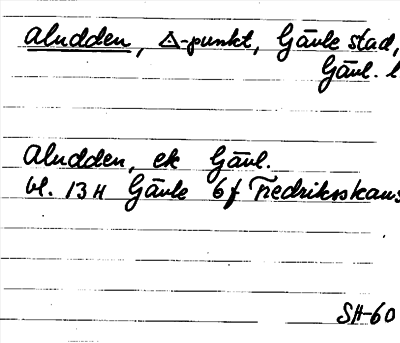 Aludden, △-punkt, Gävle stad,
Gävl. l
Aludden, ek Gävl.
bl. 13 H Gävle 6f Fredriksskans
SH-60